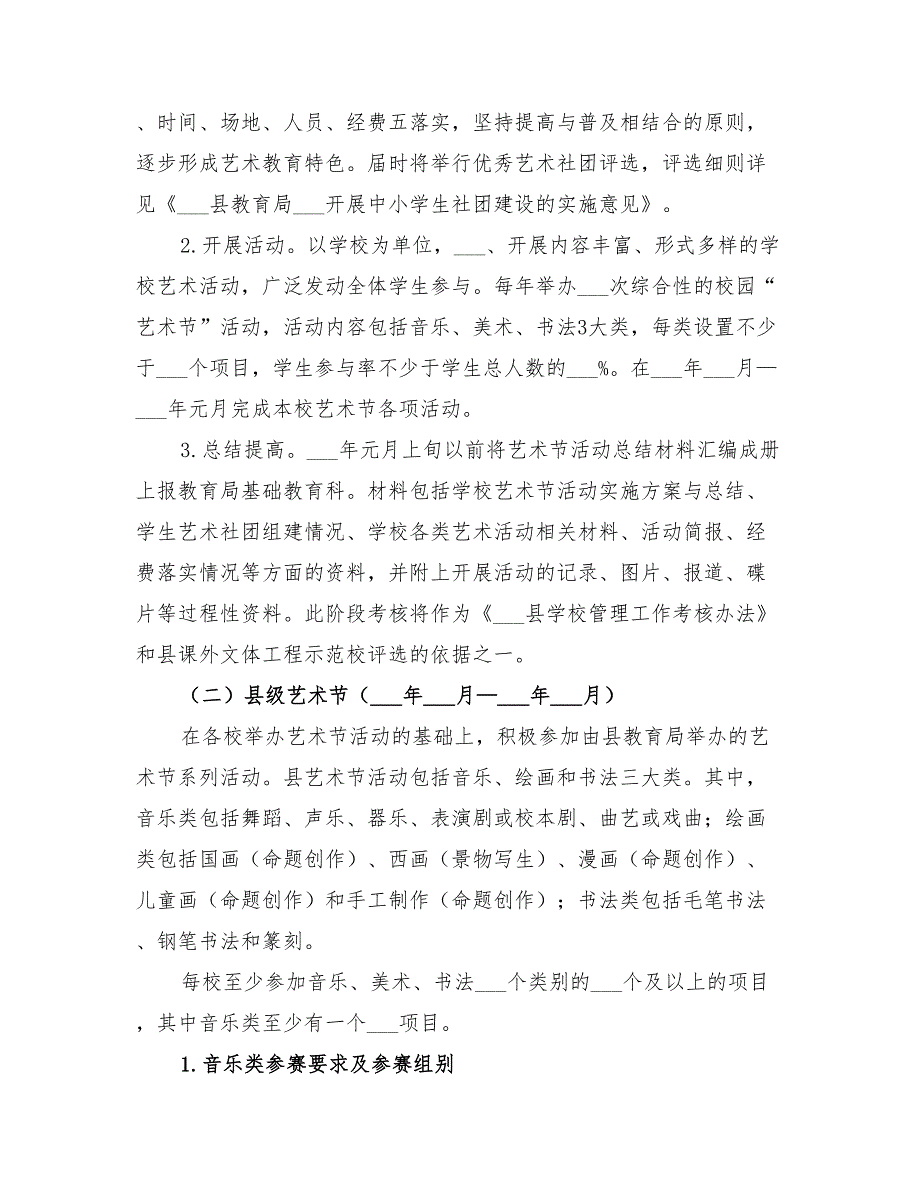 、时间、场地、人员、经费五落实，坚持提高与普及相结合的原则，
逐步形成艺术教育特色。届时将举行优秀艺术社团评选，评选细则详
见《___县教育局___开展中小学生社团建设的实施意见》。
2.开展活动。以学校为单位，___、开展内容丰富、形式多样的学
校艺术活动，广泛发动全体学生参与。每年举办___次综合性的校园“
艺术节”活动，活动内容包括音乐、美术、书法3大类，每类设置不少
于___个项目，学生参与率不少于学生总人数的___%。在___年___月—
___年元月完成本校艺术节各项活动。
3.总结提高。___年元月上旬以前将艺术节活动总结材料汇编成册
上报教育局基础教育科。材料包括学校艺术节活动实施方案与总结、
学生艺术社团组建情况、学校各类艺术活动相关材料、活动简报、经
费落实情况等方面的资料，并附上开展活动的记录、图片、报道、碟
片等过程性资料。此阶段考核将作为《___县学校管理工作考核办法》
和县课外文体工程示范校评选的依据之一。
（二）县级艺术节（___年___月—___年___月）
在各校举办艺术节活动的基础上，积极参加由县教育局举办的艺
术节系列活动。县艺术节活动包括音乐、绘画和书法三大类。其中，
音乐类包括舞蹈、声乐、器乐、表演剧或校本剧、曲艺或戏曲；绘画
类包括国画（命题创作）、西画（景物写生）、漫画（命题创作）、
儿童画（命题创作）和手工制作（命题创作）；书法类包括毛笔书法
、钢笔书法和篆刻。
每校至少参加音乐、美术、书法___个类别的___个及以上的项目
，其中音乐类至少有一个___项目。
1.音乐类参赛要求及参赛组别